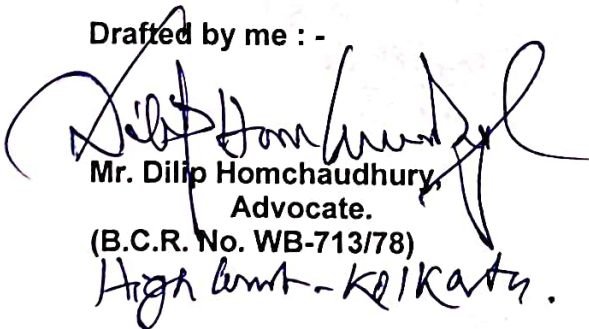 Drafted by me : -
Dilip Homchaudhury
Mr. Dilip Homchaudhury,
Advocate.
(B.C.R. No. WB-713/78)
High Court - Kolkata.